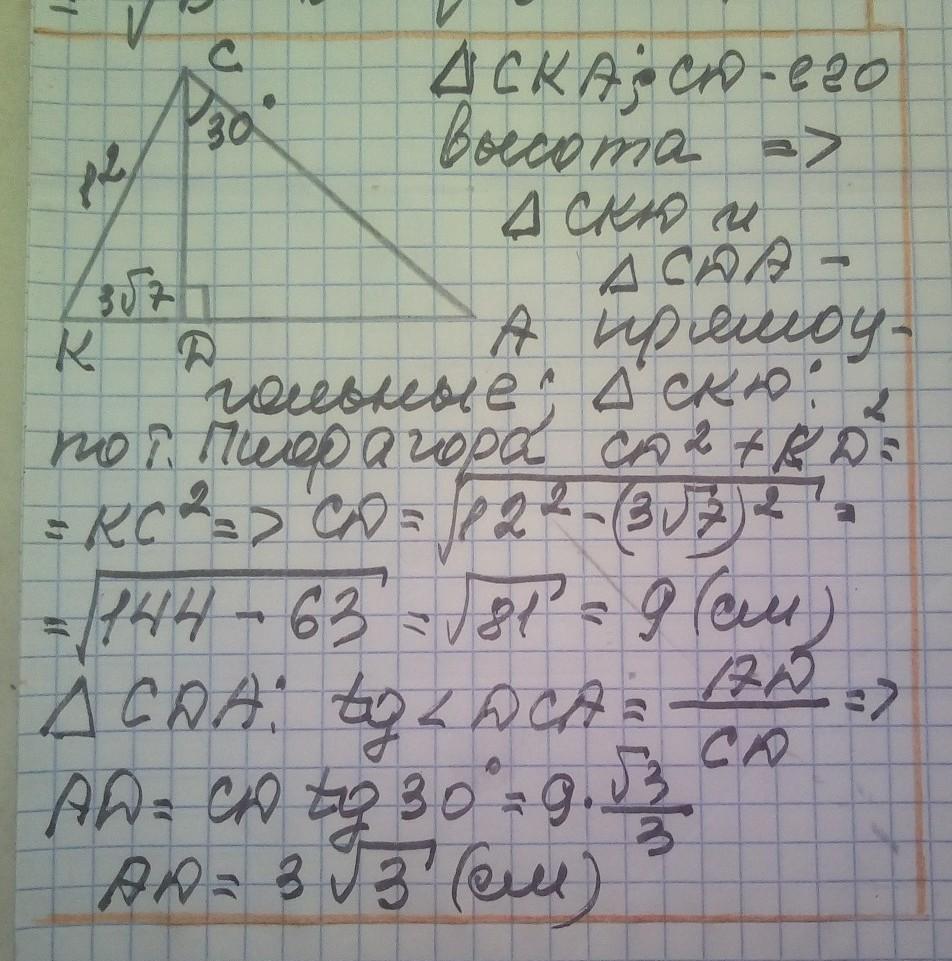 C
30°
12
3√7
K D A
△ CKA; CD - его
высота =>
△ CKD и
△ CDA -
прямоу-
гольные; △ CKD:
по т. Пифагора CD² + KD² =
= KC² => CD = √12² - (3√7)² =
= √144 - 63 = √81 = 9 (см)
△ CDA: tg < DCA = AD/CD =>
AD = CD tg 30° = 9 · √3/3
AD = 3√3 (см)